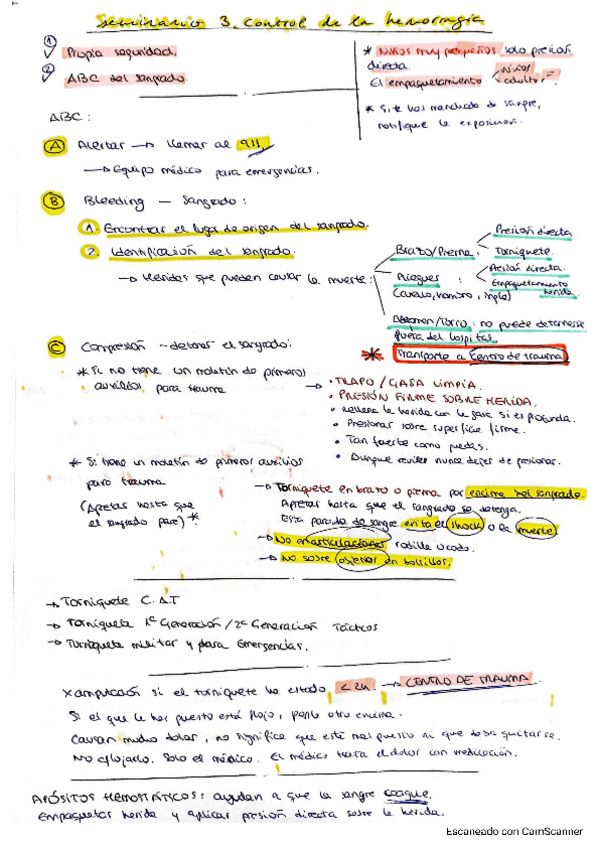 Seminario 3. Control de la hemorragia
① Propia seguridad.
② ABC del sangrado
* Niños muy pequeños solo presión
directa.
El empaquetamiento niños
adultos =
* Si te has manchado de sangre,
notifique la exposición.
ABC:
Ⓐ Alertar → llamar al 911.
→ Equipo médico para emergencias.
Ⓑ Bleeding – Sangrado:
1. Encontrar el lugar de origen del sangrado.
2. Identificación del sangrado.
→ Heridas que pueden causar la muerte:
Brazo/Pierna: Presión directa
Torniquete
Pliegues : Presión directa.
(Cuello, hombro, ingle) Empaquetamiento
herida
Abdomen/Torso: no puede detenerse
fuera del hospital
* Transporte a Centro de trauma
Ⓒ Compresión – detener el sangrado:
* Si no tiene un maletín de primeros
auxilios para trauma
→ • TRAPO / GASA LIMPIA.
• PRESIÓN FIRME SOBRE HERIDA.
• Rellene la herida con la gasa si es profunda.
• Presionar sobre superficie firme.
• Tan fuerte como puedas.
• Aunque revises nunca dejes de presionar.
* Si tiene un maletín de primeros auxilios
para trauma
(Apretar hasta que
el sangrado pare) *
→ Torniquete en brazo o pierna por encima del sangrado.
Apretar hasta que el sangrado se detenga.
Esta parada de sangre evita el shock o la muerte
→ No en articulaciones rodilla o codo.
→ No sobre objetos en bolsillos.
→ Torniquete C.A.T
→ Torniquete 1ª Generación / 2ª Generación Tácticos
→ Torniquete militar y para Emergencias.
X amputación si el torniquete ha estado < 2h. → CENTRO DE TRAUMA
Si el que le has puesto está flojo, ponle otro encima.
Causan mucho dolor, no significa que esté mal puesto ni que deba quitarse.
No aflojarlo. Solo el médico. El médico trata el dolor con medicación.
APÓSITOS HEMOSTÁTICOS: ayudan a que la sangre coague.
Empaquetar herida y aplicar presión directa sobre la herida.
Escaneado con CamScanner